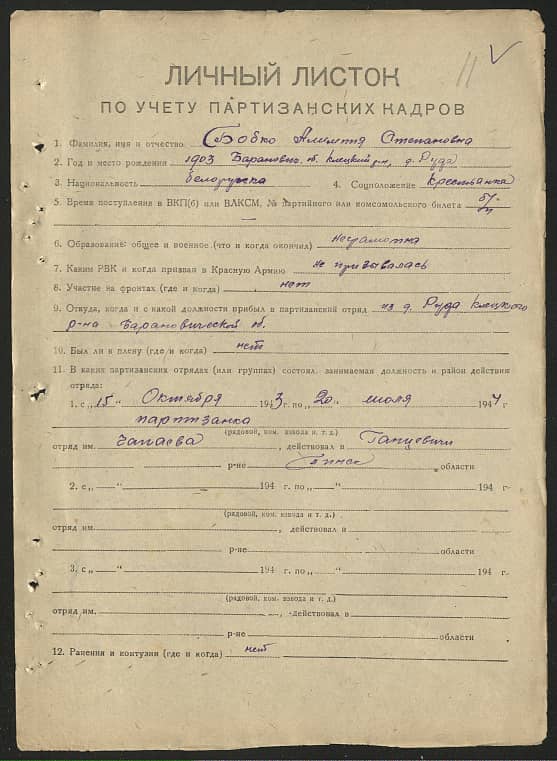 11 V
ЛИЧНЫЙ ЛИСТОК
ПО УЧЕТУ ПАРТИЗАНСКИХ КАДРОВ
1. Фамилия, имя и отчество Бобко Степановна
2. Год и место рождения 1903 Баранович. об. Клецкий р-н, д. Руда
3. Национальность белоруска 4. Соцположение крестьянка
5. Время поступления в ВКП(б) или ВЛКСМ, № партийного или комсомольского билета б/п
6. Образование: общее и военное (что и когда окончил) неграмотна
7. Каким РВК и когда призван в Красную Армию не призывалась
8. Участие на фронтах (где и когда) нет
9. Откуда, когда и с какой должности прибыл в партизанский отряд из д. Руда Клецкого
р-на Барановической об.
10. Был ли к плену (где и когда) нет
11. В каких партизанских отрядах (или группах) состоял, занимаемая должность и район действия
отряда:
1. с „15" Октября 1943 г. по „20" июля 1944 г
партизанка
(рядовой, ком. взвода и т. д.)
отряд им. Чапаева, действовал в Ганцевичи
р-не Пинск области
2. с „ " 194 г. по „ " 194 г.
(рядовой, ком. взвода и т. д.)
отряд им. , действовал в
р-не области
3. с „ " 194 г. по „ " 194 г.
(рядовой, ком. взвода и т. д.)
отряд им. , действовал в
р-не области
12. Ранения и контузии (где и когда) нет